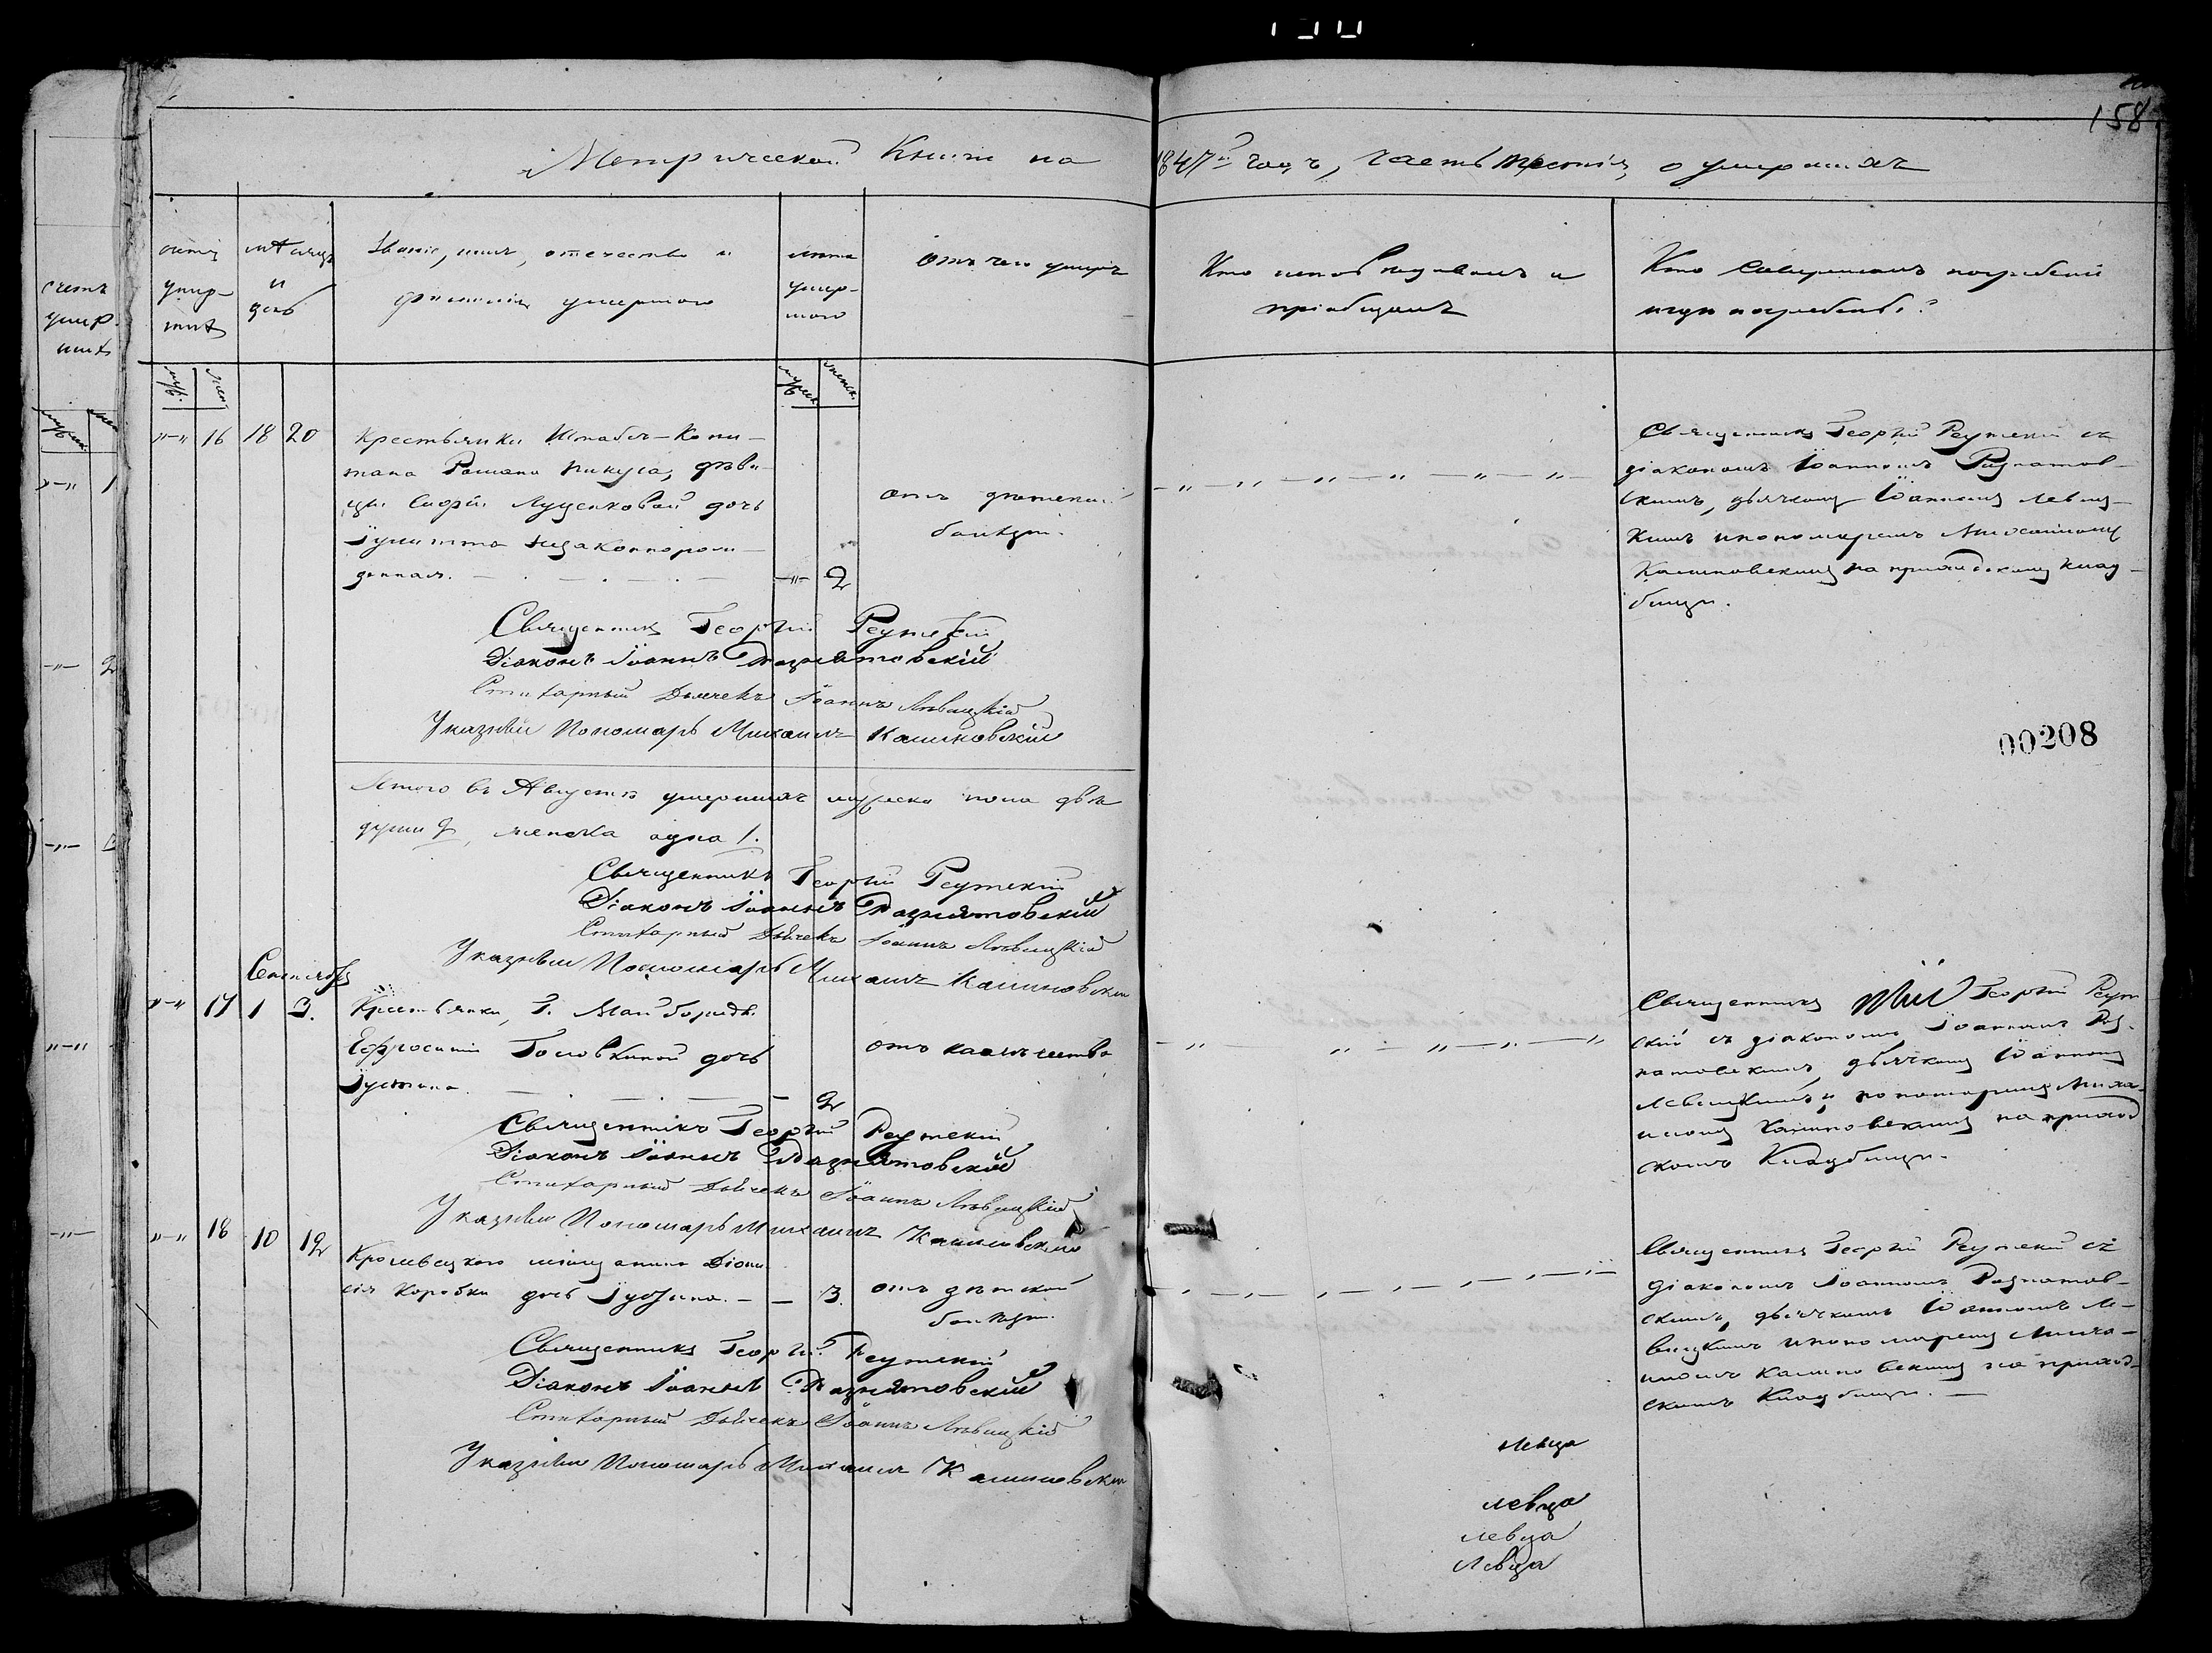 158
Метрической Книги на 1847й годъ, часть третія, о умершихъ
счетъ
умер-
шихъ
счетъ
умер-
шихъ
мѣсяцъ
и
день
Званіе, имя, отечество и
фамилія умершаго
лѣта
умер-
шаго
отъ чего умеръ
Кто исповѣдывалъ и
пріобщалъ
Кто совершалъ погребеніе
и гдѣ погребены?
муж. жен.
муж. женск.
-„- 16 18 20
Крестьянки Штабсъ-Капи-
тана Романа Пикуса, дѣви-
цы Софіи Луценковой дочь
Іулитта незаконнорож-
денная. -„- 2
отъ дѣтской
болѣзни.
Священникъ Георгій Реутскій съ
діакономъ Іоанномъ Разнатов-
скимъ, дьячкомъ Іоанномъ Левиц-
кимъ и пономаремъ Михаиломъ
Калиновскимъ на приходскомъ клад-
бищи.
Священникъ Георгій Реутскій
Діаконъ Іоаннъ Разнатовскій
Стихарный Дьячекъ Іоаннъ Лѣвицкій
Указный Пономарь Михаилъ Калиновскій
00208
Итого въ Августѣ умершихъ мужеска пола двѣ
души 2, женска одна 1.
Священникъ Георгій Реутскій
Діаконъ Іоаннъ Разнатовскій
Стихарный Дьячекъ Іоаннъ Лѣвицкій
Указный Пономарь Михаилъ Калиновскій
Сентябрь
-„- 17 1 3.
Крестьянки, Г. Майбороды
Ефросиніи Головкиной дочь
Іустина. 2
отъ кашлества
Священникъ Георгій Реут-
скій съ діакономъ Іоанномъ Раз-
натовскимъ, дьячкомъ Іоанномъ
Левицкимъ, и пономаремъ Миха-
иломъ Калиновскимъ на приход-
скомъ Кладбищи.
Священникъ Георгій Реутскій
Діаконъ Іоаннъ Разнатовскій
Стихарный Дьячекъ Іоаннъ Лѣвицкій
Указный Пономарь Михаилъ Калиновскій
-„- 18 10 12
Кролевецкого мѣщанина Діони-
сія Коробки дочь - - 3.
отъ дѣтской
болѣзни.
Священникъ Георгій Реутскій съ
діакономъ Іоанномъ Разнатов-
скимъ, дьячкомъ Іоанномъ Ле-
вицкимъ и пономаремъ Миха-
иломъ Калиновскимъ на приход-
скомъ Кладбищи. -
Священникъ Георгій Реутскій
Діаконъ Іоаннъ Разнатовскій
Стихарный Дьячекъ Іоаннъ Лѣвицкій
Указный Пономарь Михаилъ Калиновскій
Левца
левца
левца
Левца